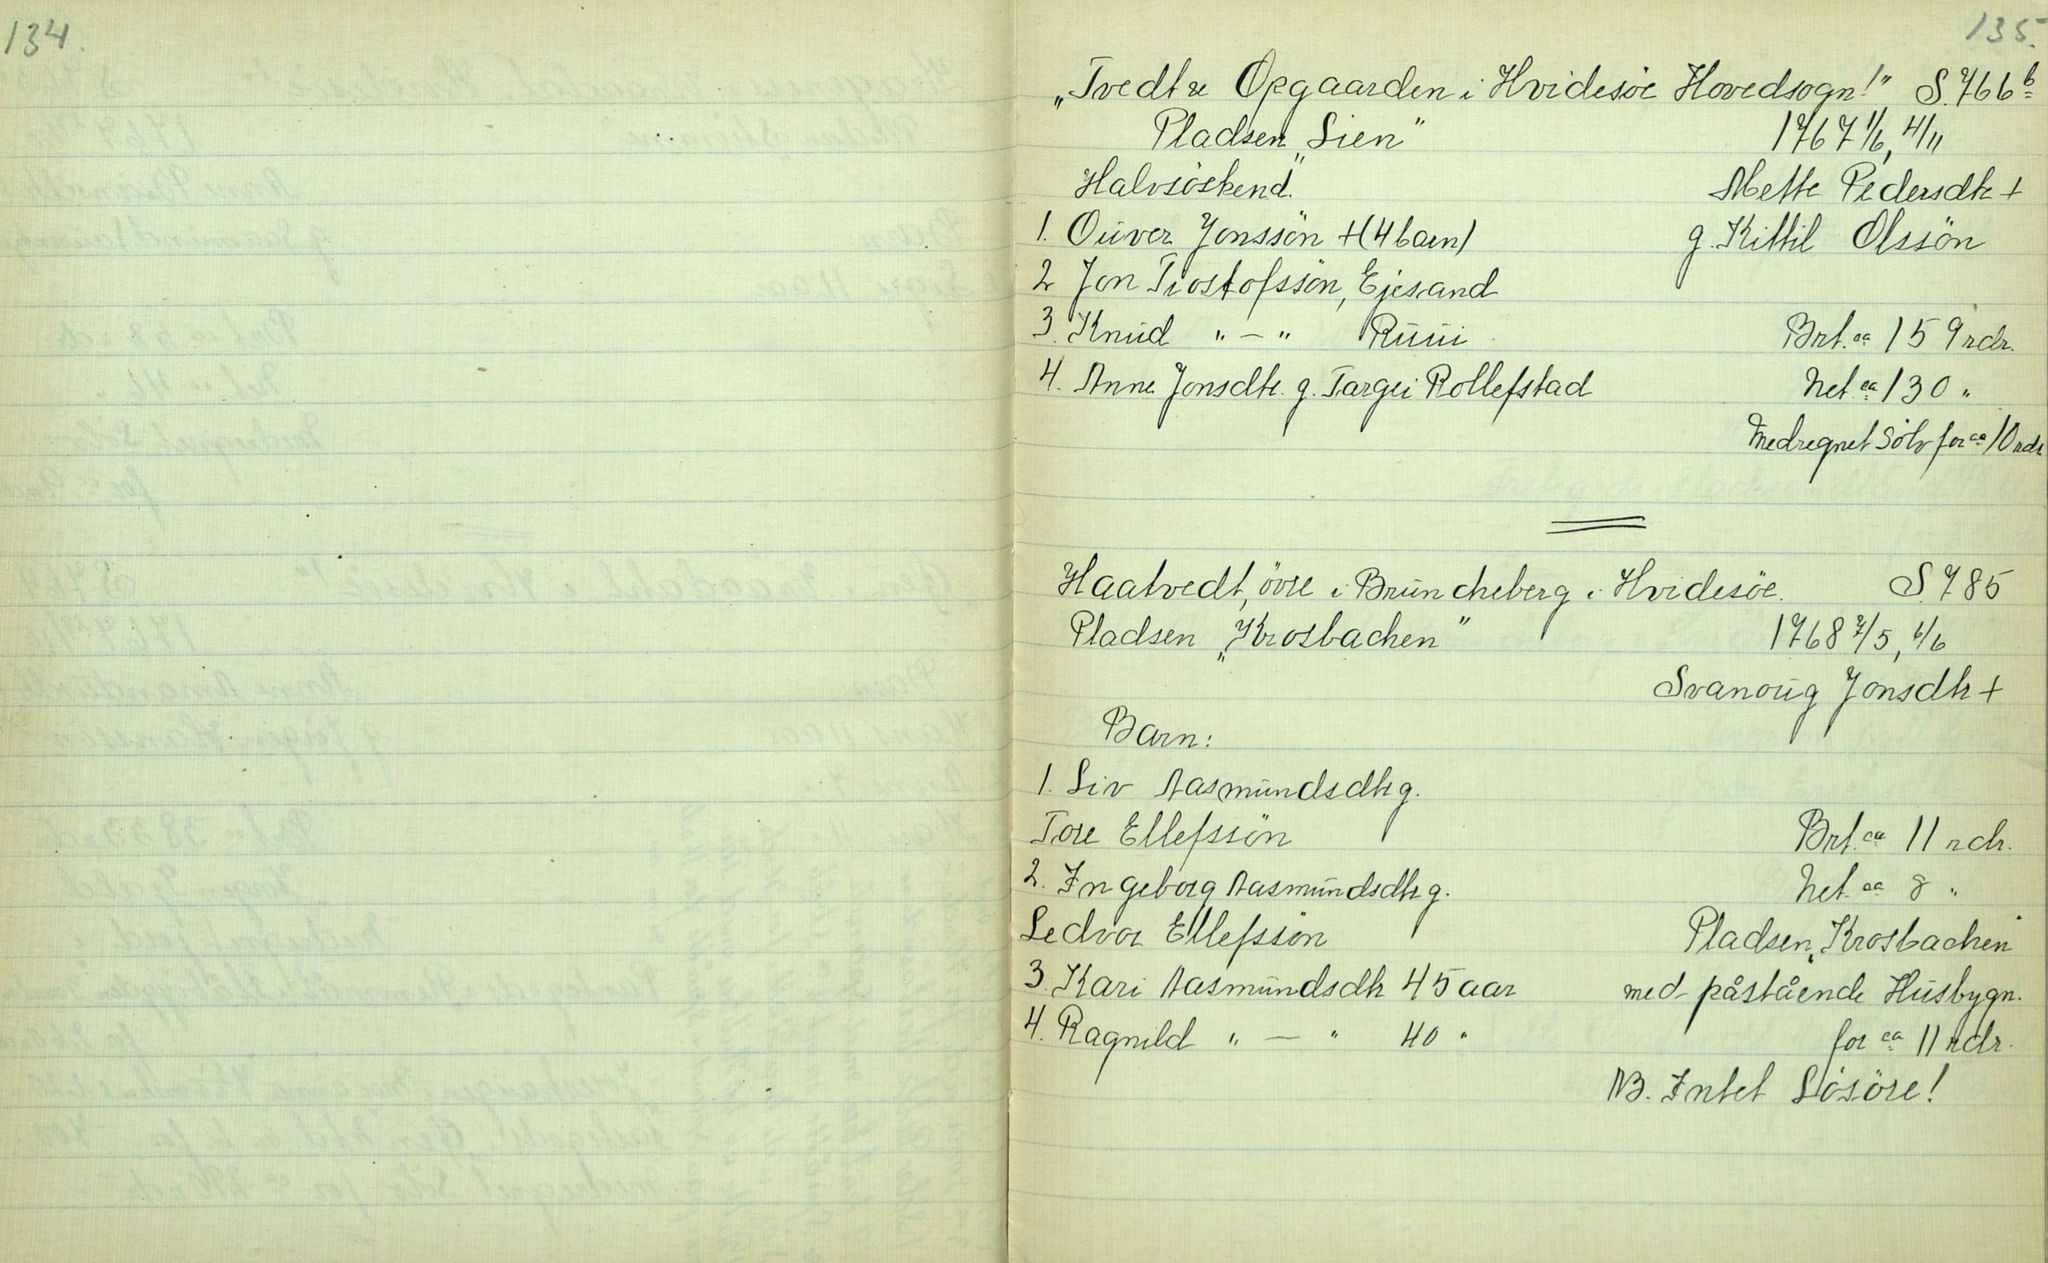 134.
135.
„Tvedt u Opgaarden i Hvidesöe Hovedsogn!" S. 766 b
Pladsen „Lien" 1767 1/6, 4/11
Halvsöskend. Mette Pedersdtr +
1. Ouver Jonssön + (4 barn) g. Kittil Olssön
2 Jon Trostofssön, Ejesand
3. Knud " — " Ruui Brt. ca 159 rdr.
4. Anne Jonsdtr. g. Targei Rollefstad Net ca 130 "
Medregnet Sölv for ca 10 rdr
Haatvedt, övre i Bruncheberg i Hvidesöe. S. 785
Pladsen „Krosbachen" 1768 7/5, 6/6
Svanoug Jonsdtr +
Barn:
1. Liv Aasmundsdtr g.
Tore Ellefssön Brt. ca 11 rdr.
2. Ingeborg Aasmundsdtr g. Net. ca 8 "
Ledvor Ellefssön Pladsen „Krosbachen
3. Kari Aasmundsdtr 45 aar med påstående Husbygn.
4. Ragnild " — " 40 " for ca 11 rdr.
NB. Intet Lösöre!